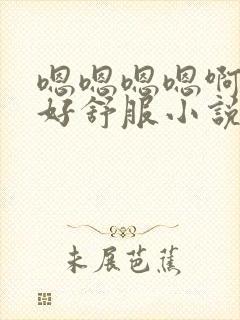 嗯嗯嗯嗯啊
好舒服小説
未展芭蕉